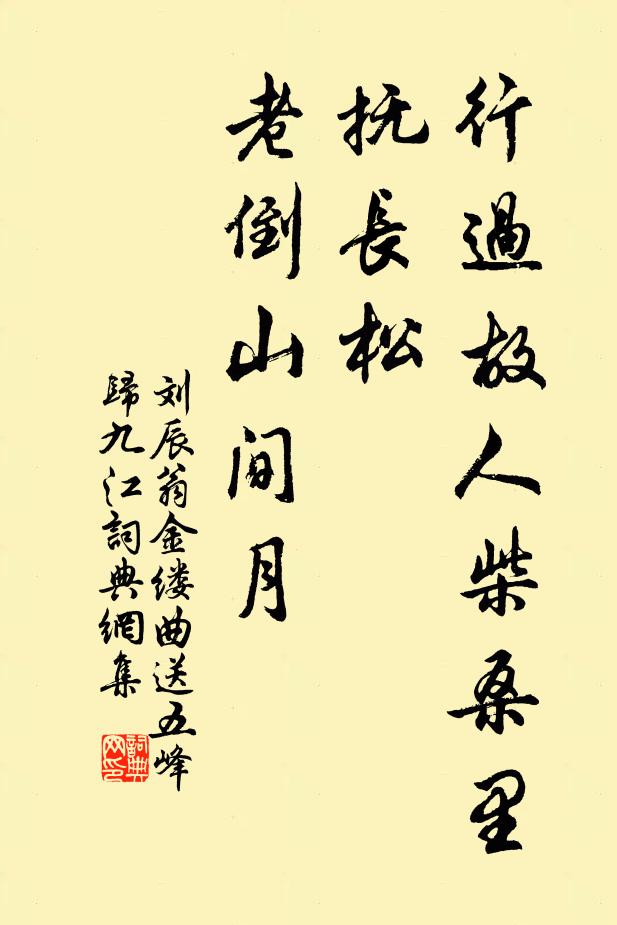 行過故人柴桑里
抚長松
老倒山间月
刘辰翁金缕曲送五峰
歸九江詞典網集
詞典
网印